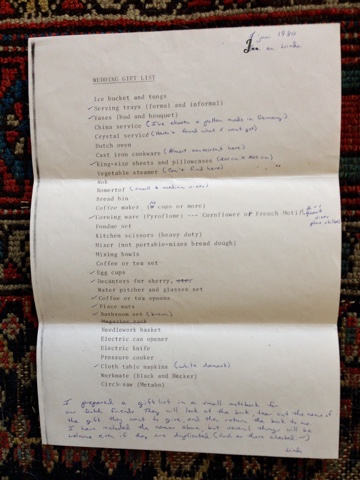 1 jan 1980
WEDDING GIFT LIST
Ice bucket and tongs
✓Serving trays (formal and informal)
✓Vases (bud and bouquet)
China service (I've chosen a pattern made in Germany)
Crystal service (Haven't found what I want yet)
Dutch oven
Cast iron cookware (Almost nonexistent here)
✓King-size sheets and pillowcases
Vegetable steamer (Can't find here)
Wok
Romertof (small & medium sizes)
Bread bin
Coffee maker cups or more)
✓Corning ware (Pyroflame): --- Cornflower or French Motif
Fondue set
Kitchen scissors (heavy duty)
Mixer (not portable-mixes bread dough)
Mixing bowls
Coffee or tea set
✓Egg cups
✓Decanters for sherry,
Water pitcher and glasses set
✓Coffee or tea spoons
✓Place mats
✓Bathroom set (brown)
Magazine rack
Needlework basket
Electric can opener
Electric knife
Pressure cooker
✓Cloth table napkins (white damask)
Workmate (Black and Decker)
Circ saw (Metabo)
I prepared a gift list in a small notebook for
our Dutch friends. They will look at the book, tear out the name of
the gift they want to give, and then return the book to me.
I have included the names above, but several things will be
welcome even if they are duplicated (such as those checked ✓)
Linda